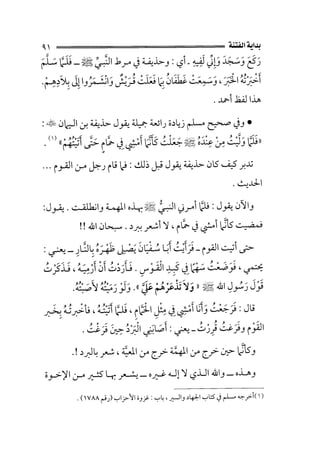 بداية الفتنة
٩١
رَكَعَ وَسَجَدَ وَإِنِّي لَفِيهِ ـ أي : وحذيفة في مرط النَّبيِّ ﷺ ـ فَلَمَّا سَلَّمَ
أَخْبَرْتُهُ الْخَبَرَ ، وَسَمِعَتْ غَطَفَانُ بِمَا فَعَلَتْ قُرَيْشٌ وَانْشَمَرُوا إِلَى بِلَادِهِمْ.
هذا لفظ أحمد .
● وفي صحيح مسلم زيادة رائعة جميلة يقول حذيفة بن اليمان :
«فَلَمَّا وَلَّيْتُ مِنْ عِنْدِهُ ﷺ جَعَلْتُ كَأَنَّمَا أَمْشِي فِي حَمَّامٍ حَتَّى أَتَيْتُهُمْ» (١) .
تدبر كيف كان حذيفة يقول قبل ذلك : فما قام رجل من القوم ...
الحديث .
والآن يقول : فلمَّا أمرني النبيُّ ﷺ بهذه المهمة وانطلقت . يقول:
فمضيت كأنَّما أمشي في حمَّام ، لا أشعر ببرد . سبحان الله !!
حتى أتيت القوم ـ فَرَأَيْتُ أَبَا سُفْيَانَ يَصْلِى ظَهْرَهُ بِالنَّارِ ـ يعني :
يحتمي ، فَوَضَعْتُ سَهْمًا فِي كَبِدِ الْقَوْسِ . فَأَرَدْتُ أَنْ أَرْمِيَهُ ، فَذَكَرْتُ
قَوْلَ رَسُولِ الله ﷺ «وَلَا تَذْعَرْهُمْ عَلَيَّ» . وَلَوْ رَمَيْتُهُ لَأَصَبْتُهُ.
قال : فَرَجَعْتُ وَأَنَا أَمْشِي فِي مِثْلِ الْحَمَّامِ ، فَلَمَّا أَتَيْتُهُ ، فَأَخْبَرْتُهُ بِخَبَرِ
الْقَوْمِ وَفَرَغْتُ قُرِرْتُ ـ يعني : أصَابَنِي الْبَرْدُ حِينَ فَرَغْتُ .
وكأنَّما حين خرج من المهمَّة خرج من المعيَّة ، شعر بالبرد !.
وهذه ـ والله الذي لا إله غيره ـ يشعر بها كثير من الإخوة
(١) أخرجه مسلم في كتاب الجهاد والسير ، باب : غزوة الأحزاب (رقم ١٧٨٨) .